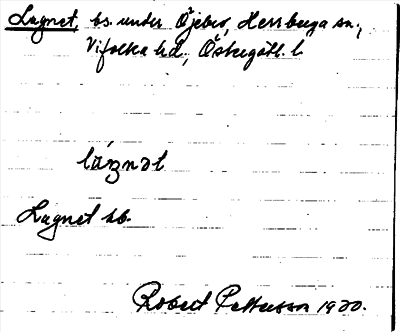 Lugnet, bs. under Öjebro, Herrberga sn.,
Vifolka hd., Östergötl. l.
Lugnet hb.
Robert Pettersson 1920.